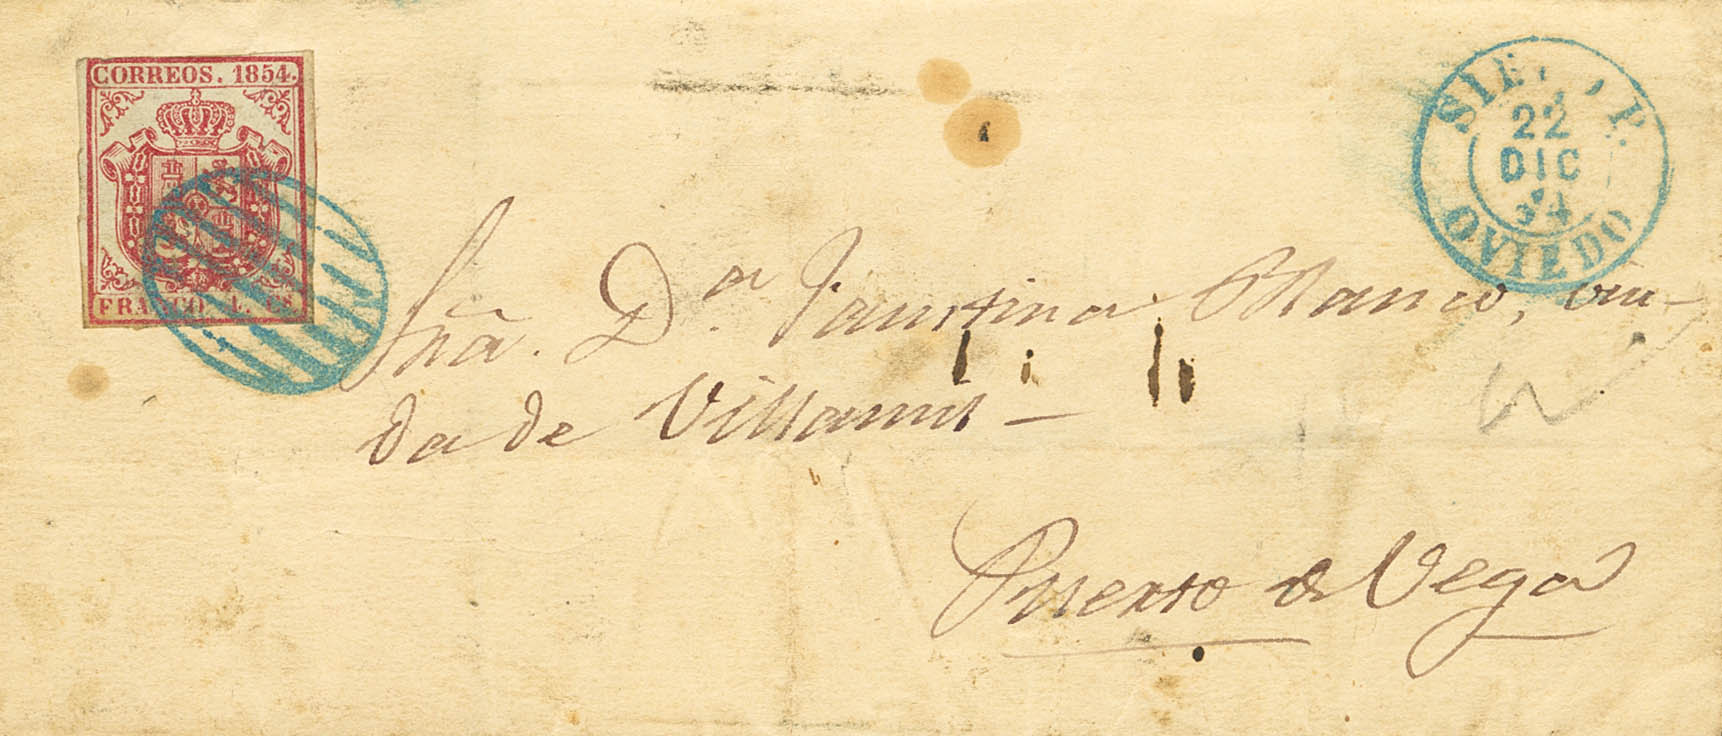 CORREOS. 1854.
FRANCO. 4. Cs
SIE P.
22
DIC
54
OVIEDO
Srã. D.a Faustina Blanco, viu-
da de Villamil
Puerto de Vega